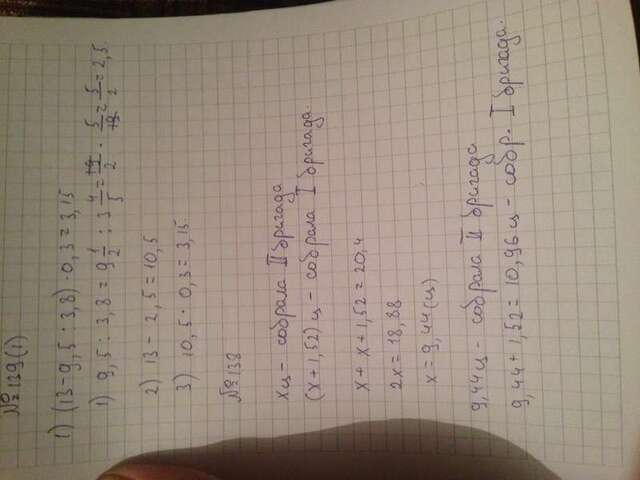 № 139(1)
1) (13-9,5 : 3,8) · 0,3 = 3,15
1) 9,5 : 3,8 = 9 1/2 : 3 4/5 = 19/2 · 5/19 = 5/2 = 2,5.
2) 13 - 2,5 = 10,5
3) 10,5 · 0,3 = 3,15
№ 138
х ц - собрала II бригада
(х + 1,52) ц - собрала I бригада.
х + х + 1,52 = 20,4
2х = 18,88
х = 9,44 (ц)
9,44 ц - собрала II бригада
9,44 + 1,52 = 10,96 ц - собр. I бригада.